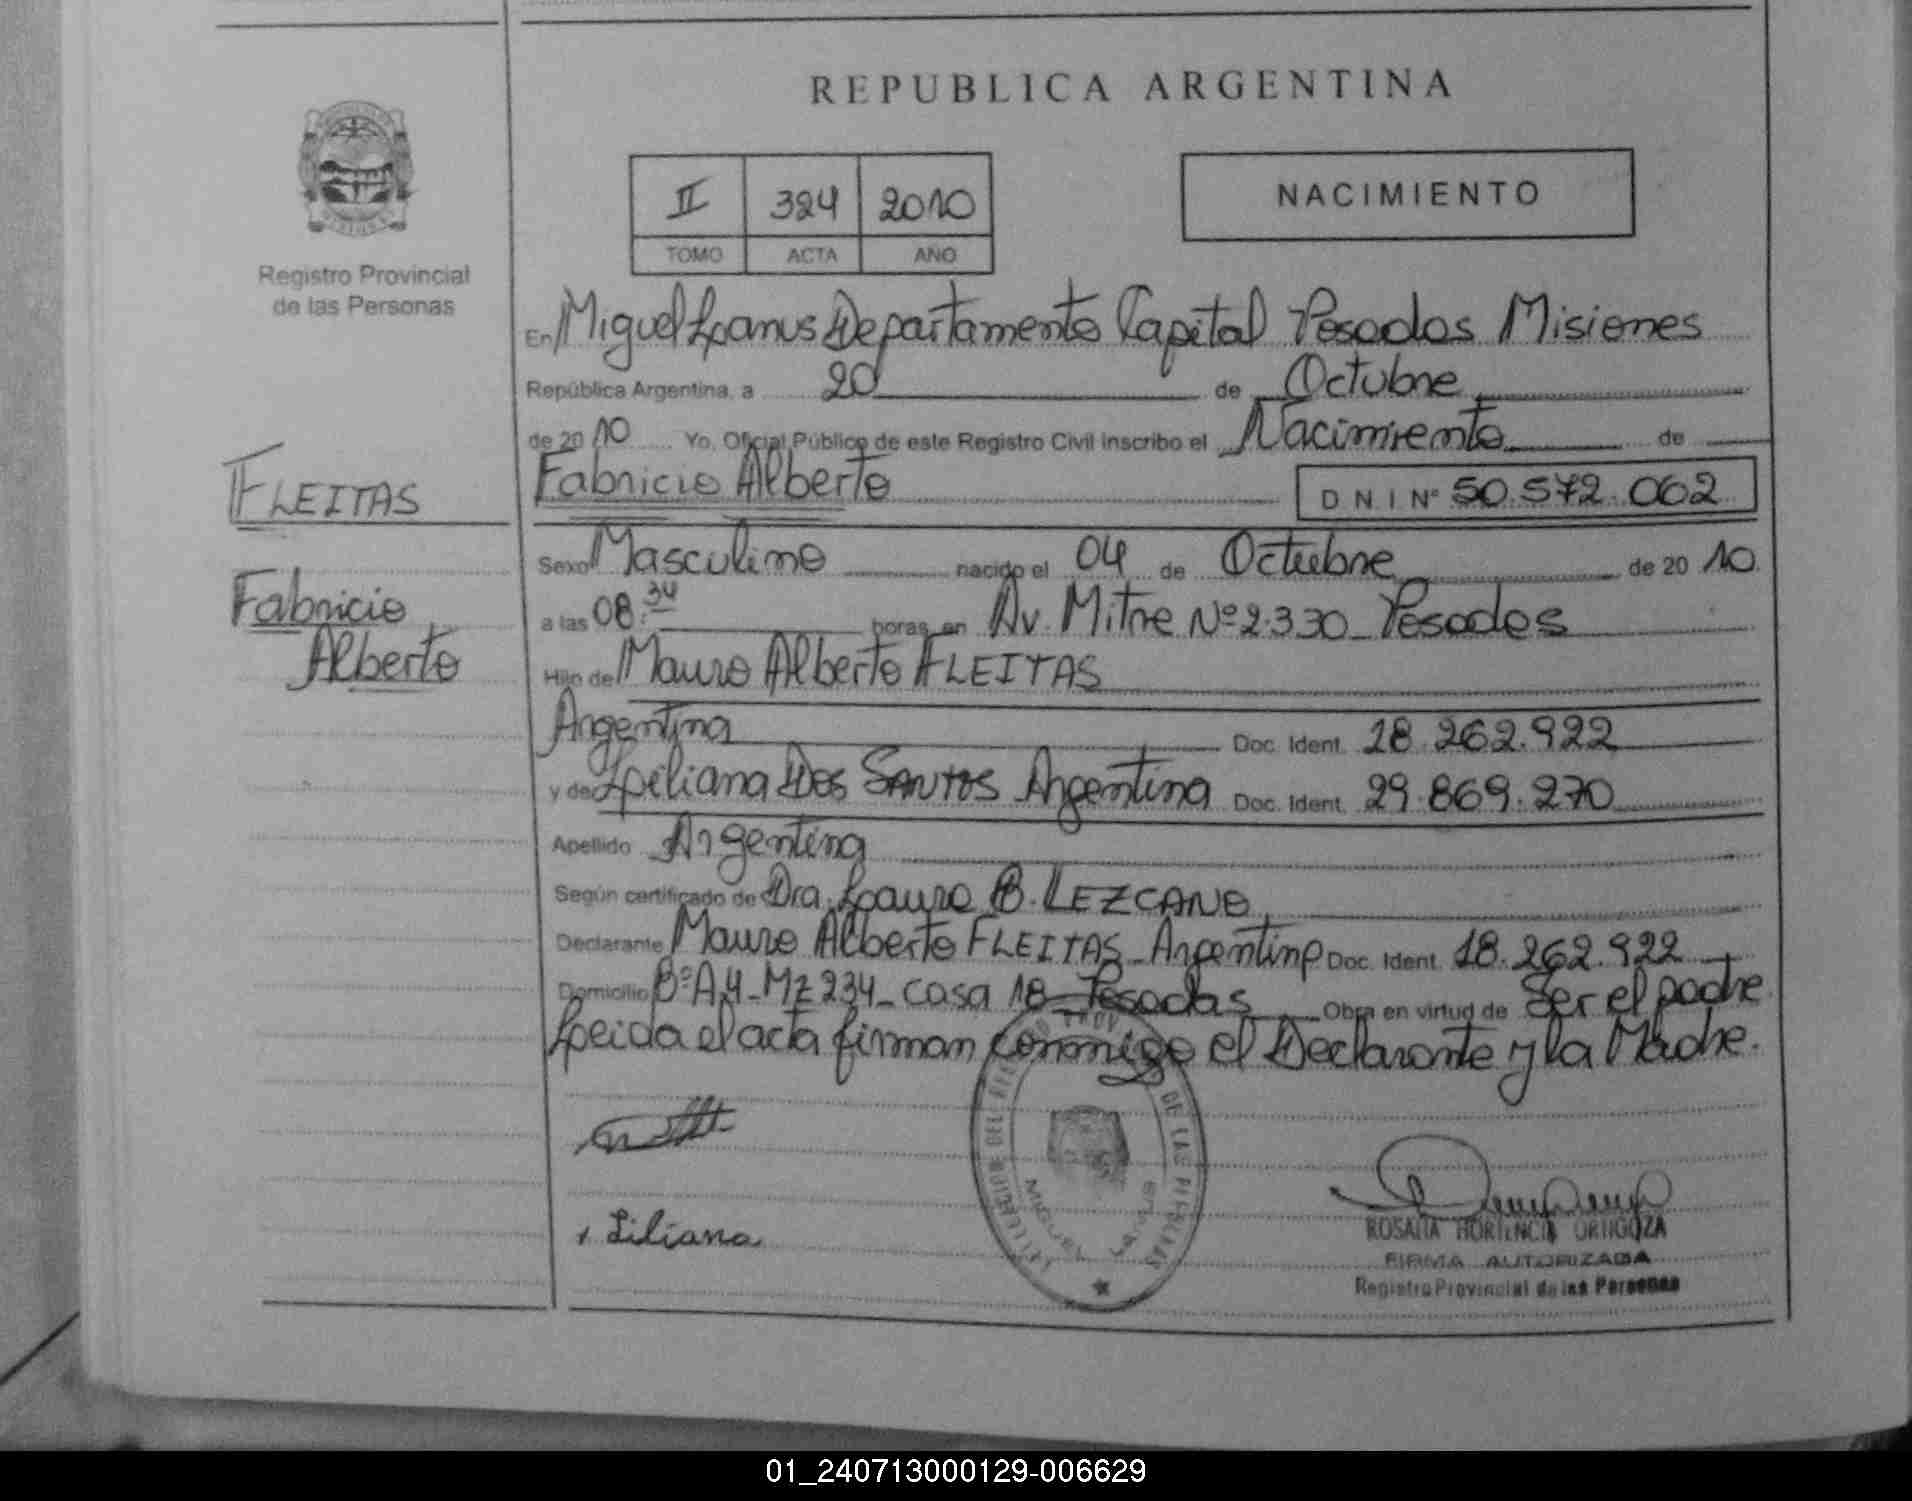 REPUBLICA ARGENTINA
II 324 2010
TOMO ACTA AÑO
NACIMIENTO
Registro Provincial
de las Personas
En Miguel Lanus Departamento Capital Posadas Misiones
República Argentina, a 20 de Octubre
de 2010 Yo, Oficial Público de este Registro Civil inscribo el Nacimiento de
FLEITAS
Fabricio Alberto
D N I Nº 50.572.062
Fabricio
Alberto
Sexo Masculino nacido el 04 de Octubre de 2010
a las 08:34 horas, en Av. Mitre Nº 2.330 - Posadas
Hijo de Mauro Alberto FLEITAS
Argentina Doc. Ident. 18.262.922
y de Liliana Dos SANTOS Argentina Doc. Ident. 29.869.270
Apellido Argentina
Según certificado de Dra. Laura B. LEZCANO
Declarante Mauro Alberto FLEITAS - Argentino Doc. Ident. 18.262.922
Domicilio Bº A.4 - Mz 234 - casa 18 - Posadas Obra en virtud de Ser el padre
Leida el acta firman conmigo el Declarante y la Madre.
Liliana
DE LAS PERSONAS
MIGUEL LANUS
ROSALIA HORTENCIA ORTIGOZA
FIRMA AUTORIZADA
Registro Provincial de las Personas
01_240713000129-006629